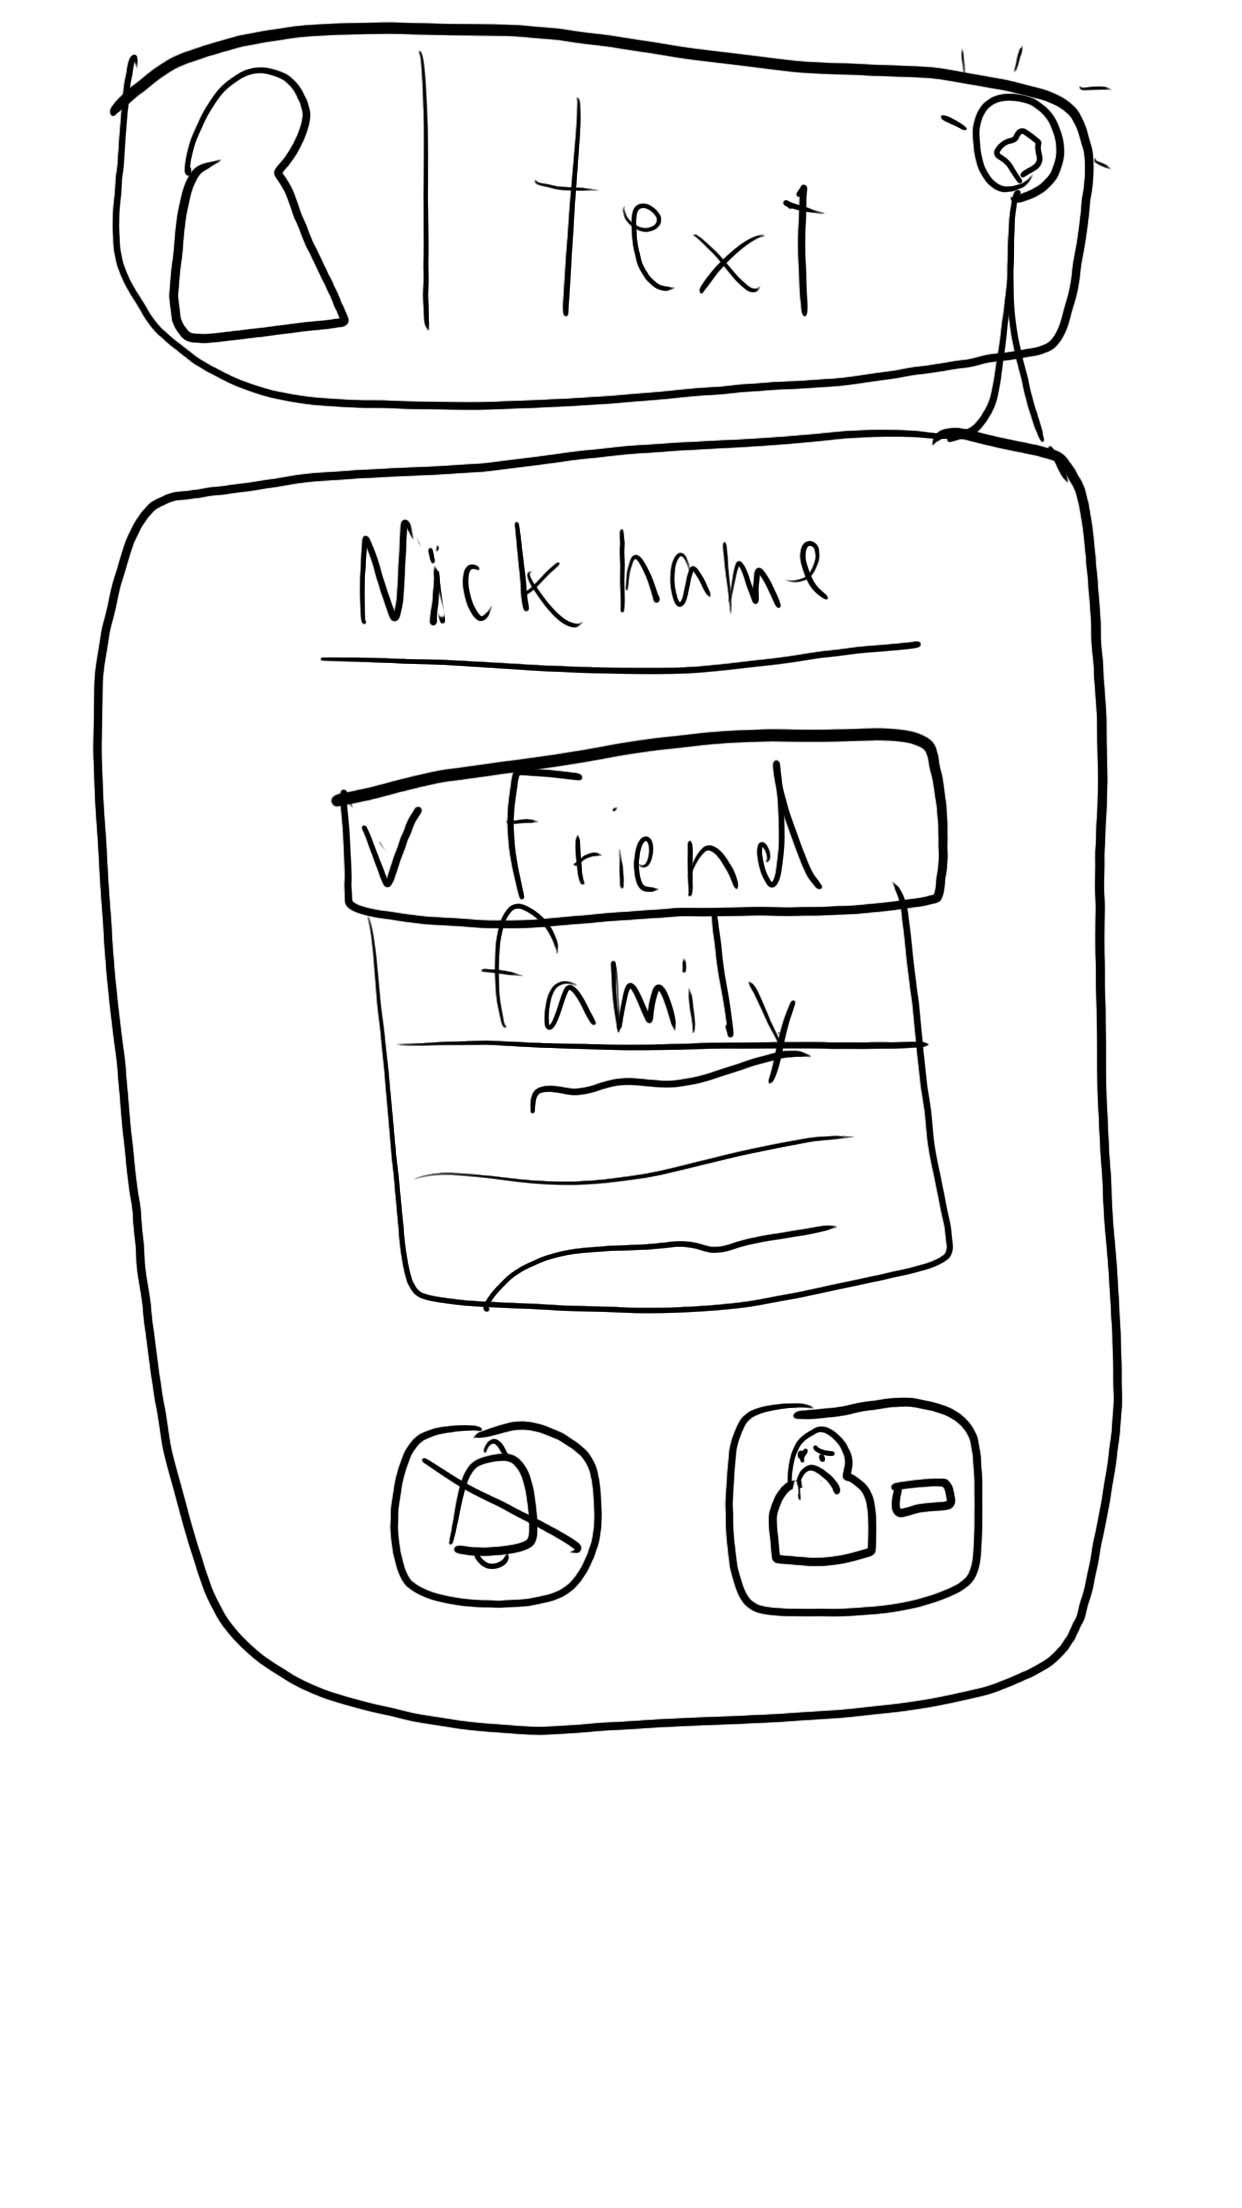 text
Nickname
✓ Friend
family